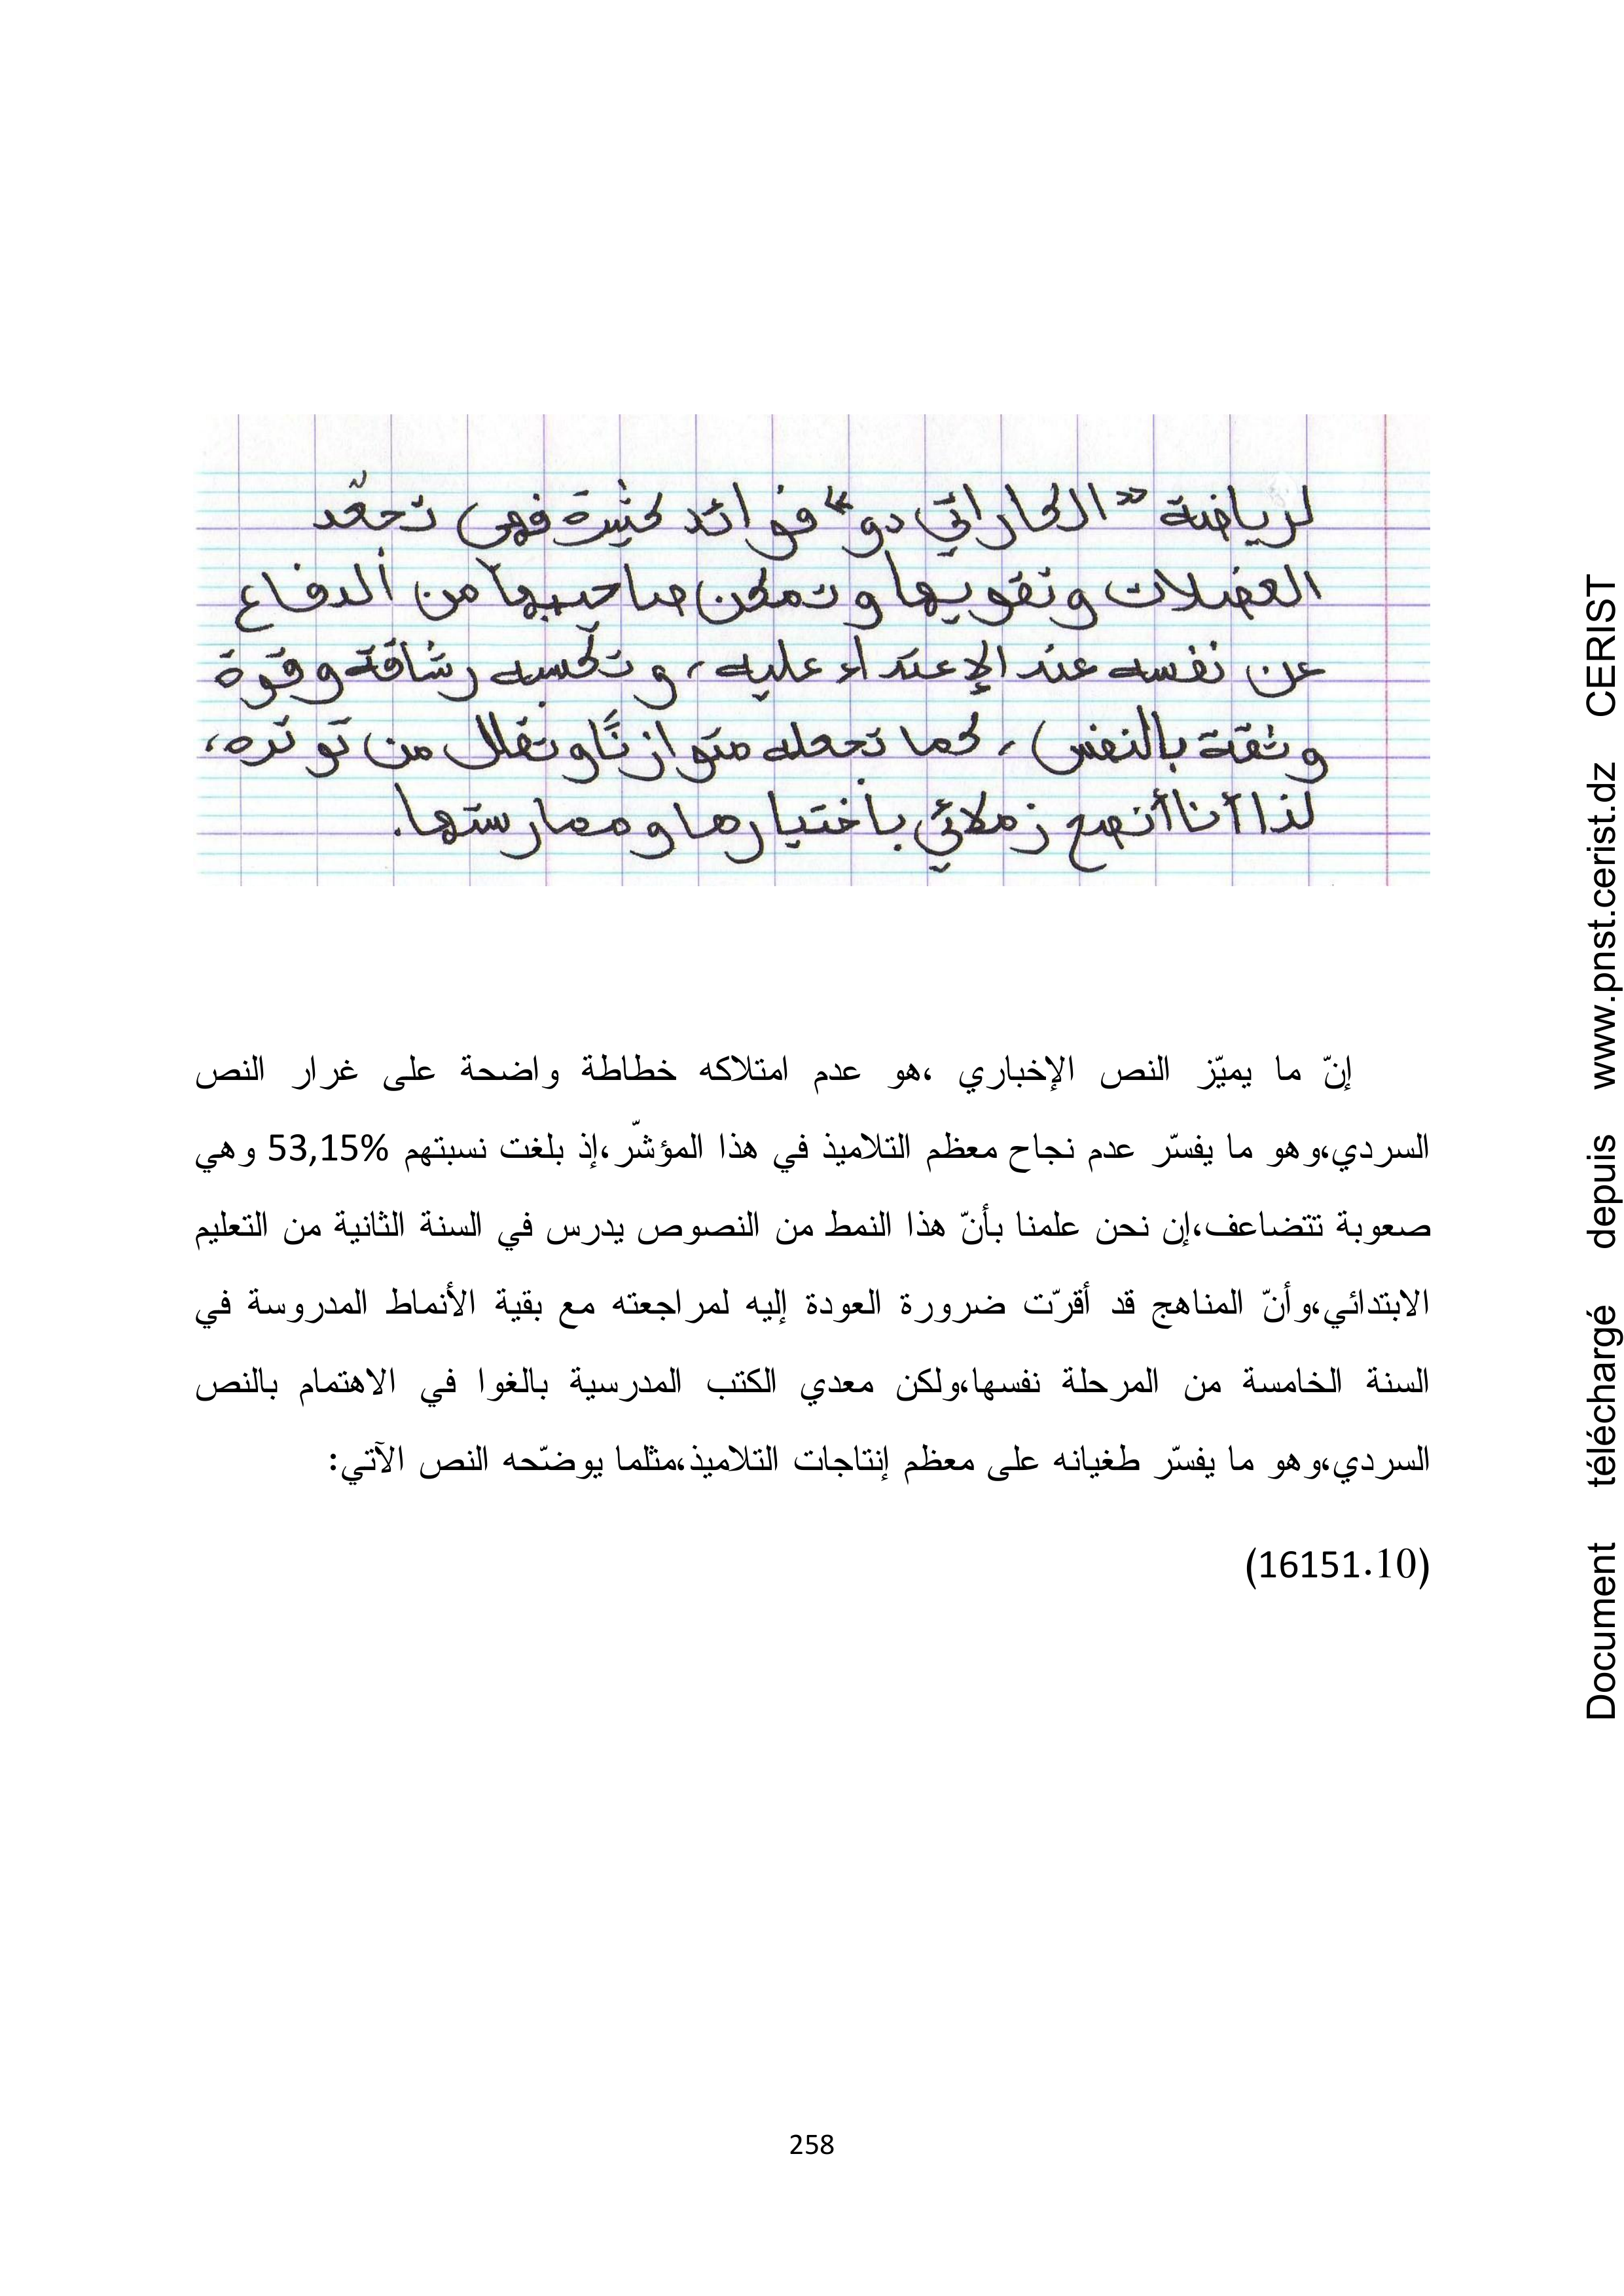 لرياضة «الكاراتي دو» فوائد كثيرة فهي تجعّد
العضلات وتقويها وتمكن صاحبها من الدفاع
عن نفسه عند الإعتداء عليه، وتكسبه رشاقة وقوة
وثقة بالنفس، كما تجعله متوازنًا وتقلل من توتره،
لذا أنا أنصح زملائي باختيارها وممارستها.
إنّ ما يميّز النص الإخباري ،هو عدم امتلاكه خطاطة واضحة على غرار النص
السردي،وهو ما يفسّر عدم نجاح معظم التلاميذ في هذا المؤشّر،إذ بلغت نسبتهم 53,15% وهي
صعوبة تتضاعف،إن نحن علمنا بأنّ هذا النمط من النصوص يدرس في السنة الثانية من التعليم
الابتدائي،وأنّ المناهج قد أقرّت ضرورة العودة إليه لمراجعته مع بقية الأنماط المدروسة في
السنة الخامسة من المرحلة نفسها،ولكن معدي الكتب المدرسية بالغوا في الاهتمام بالنص
السردي،وهو ما يفسّر طغيانه على معظم إنتاجات التلاميذ،مثلما يوضّحه النص الآتي:
(16151.10)
258
Document téléchargé depuis www.pnst.cerist.dz CERIST